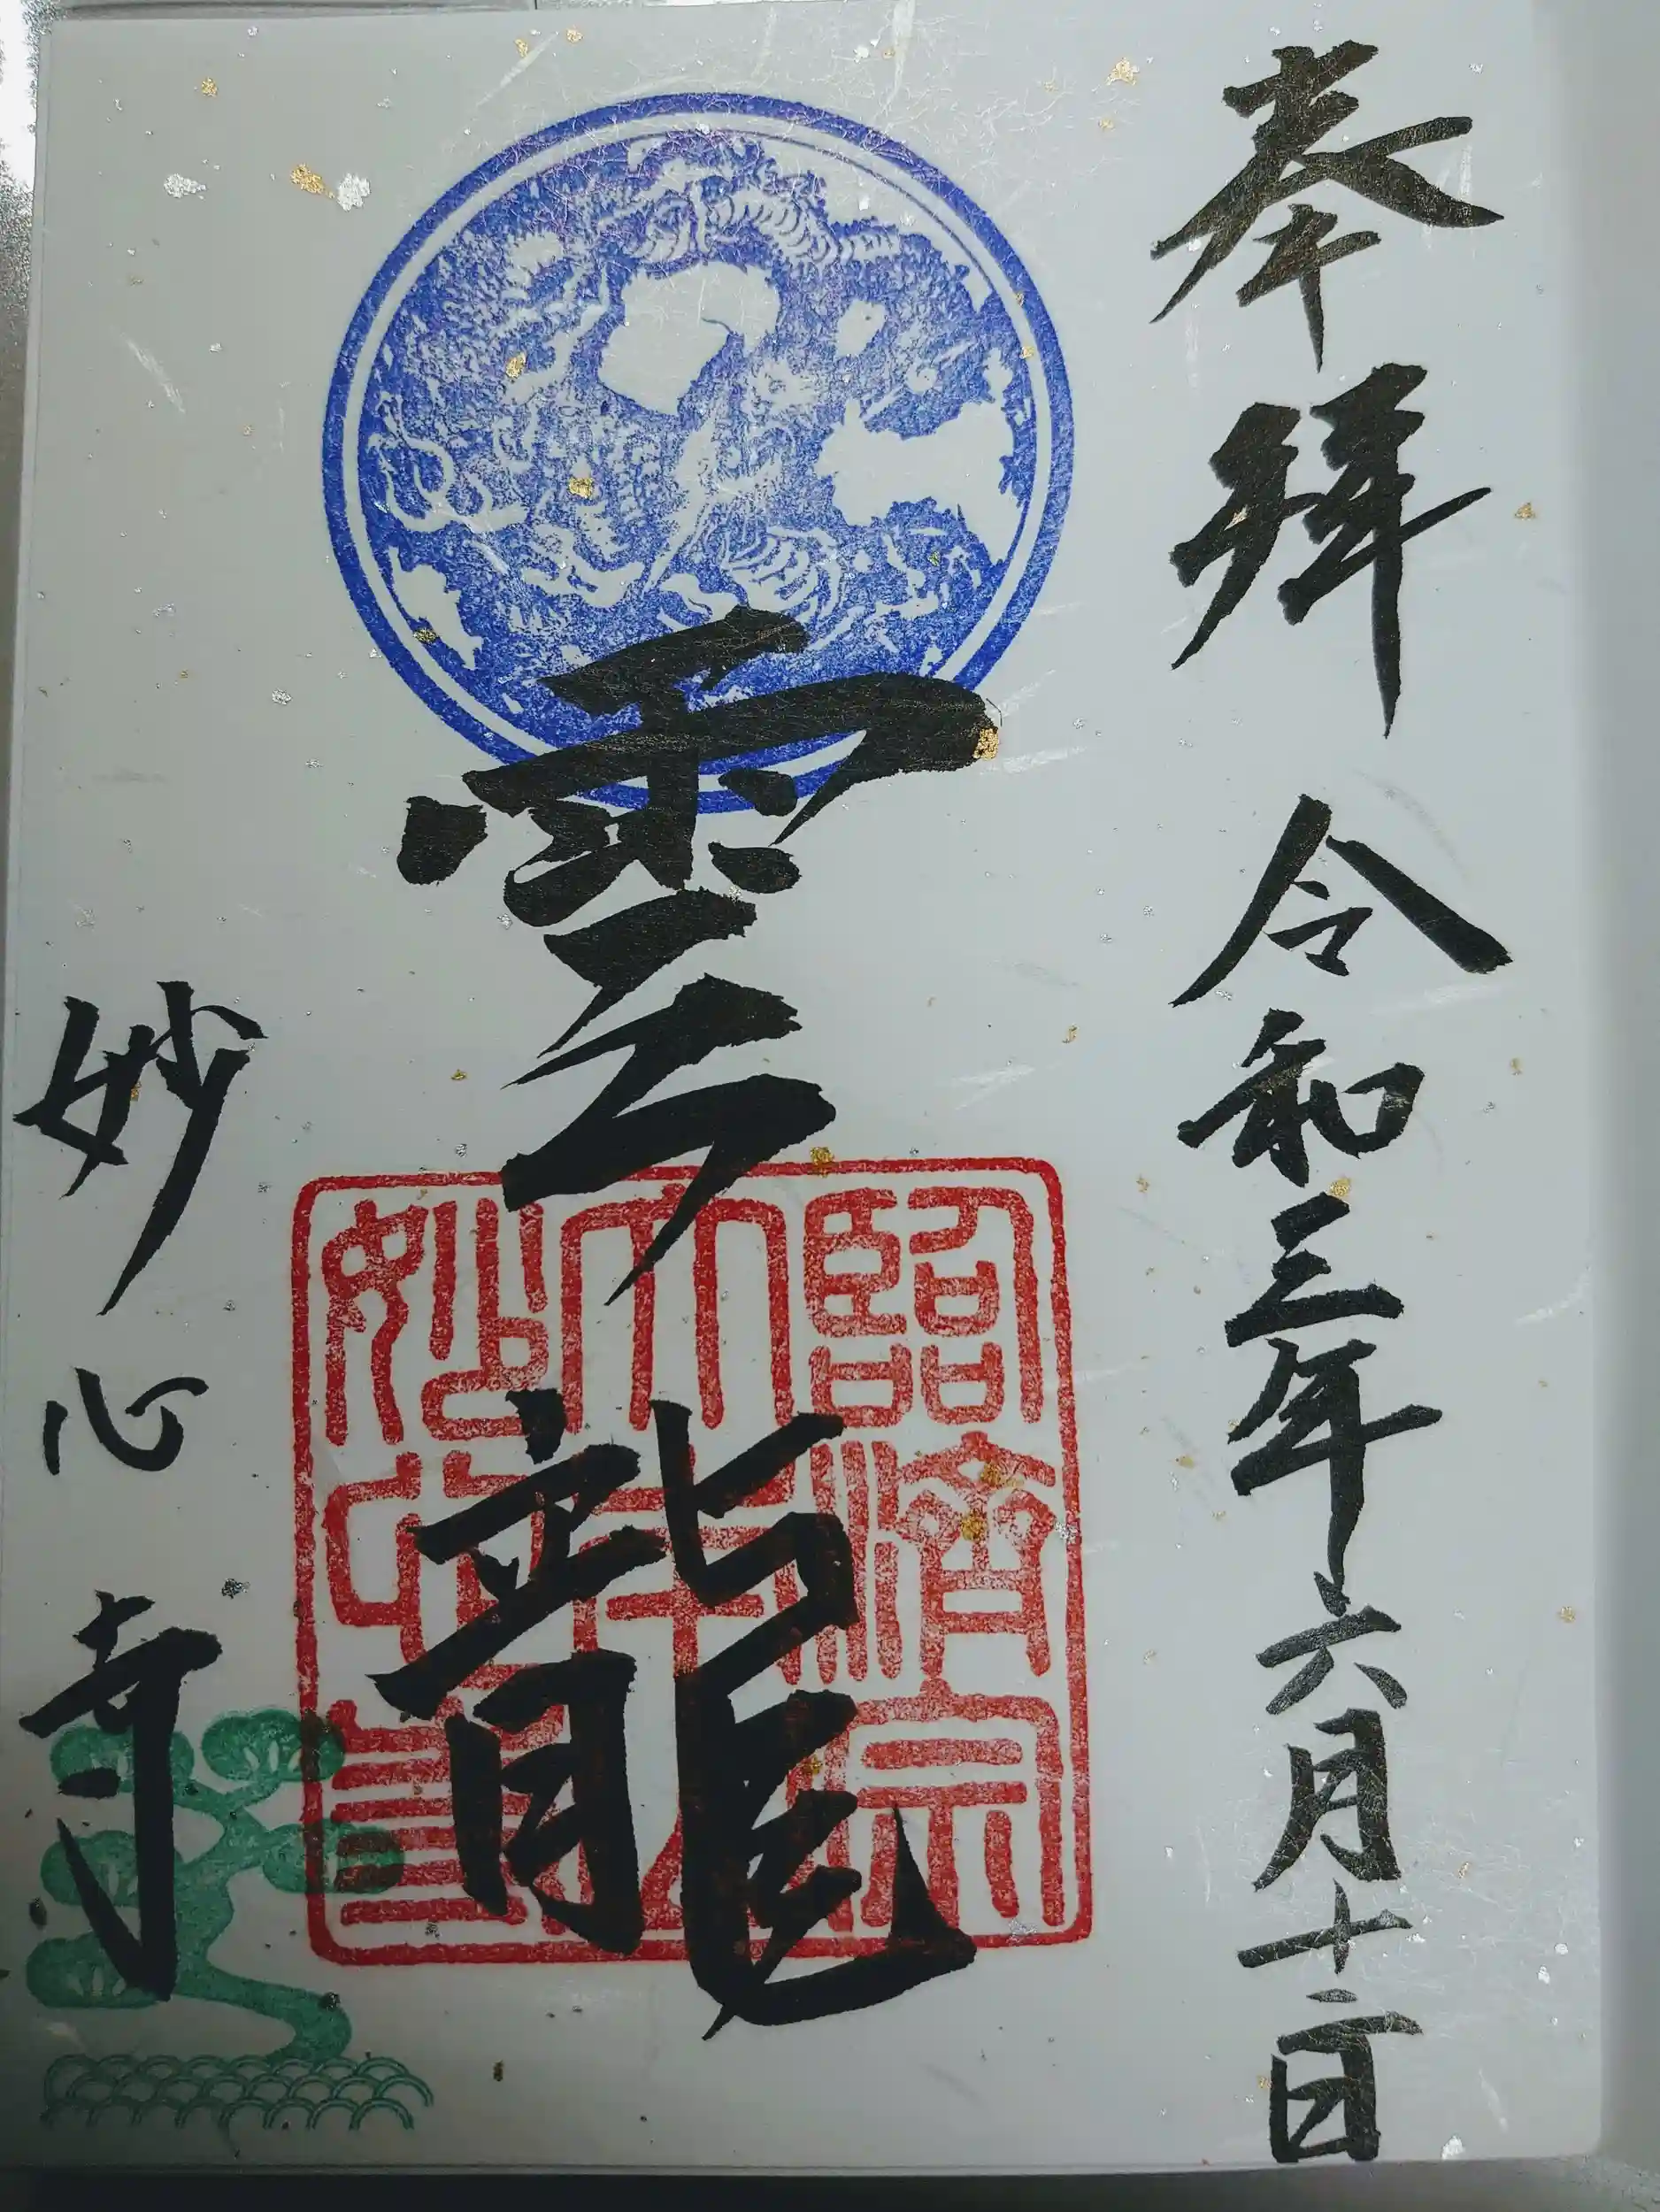 奉拝 令和三年六月十二日
雲龍
妙心寺
臨濟宗
大本山
妙心寺